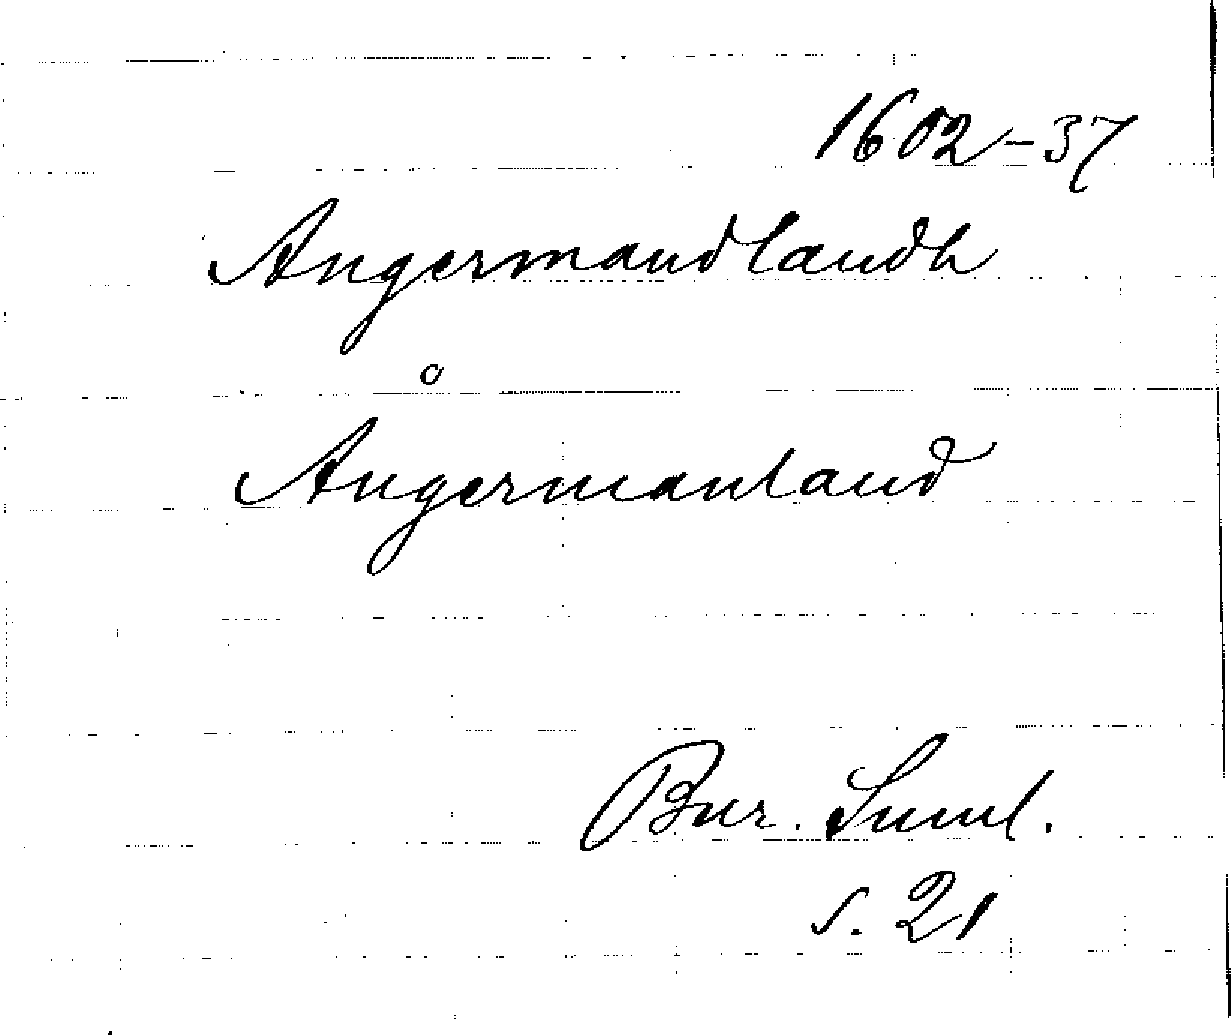 1602-37
Angermandlandh
Ångermanland
Bur. Suml.
s. 21